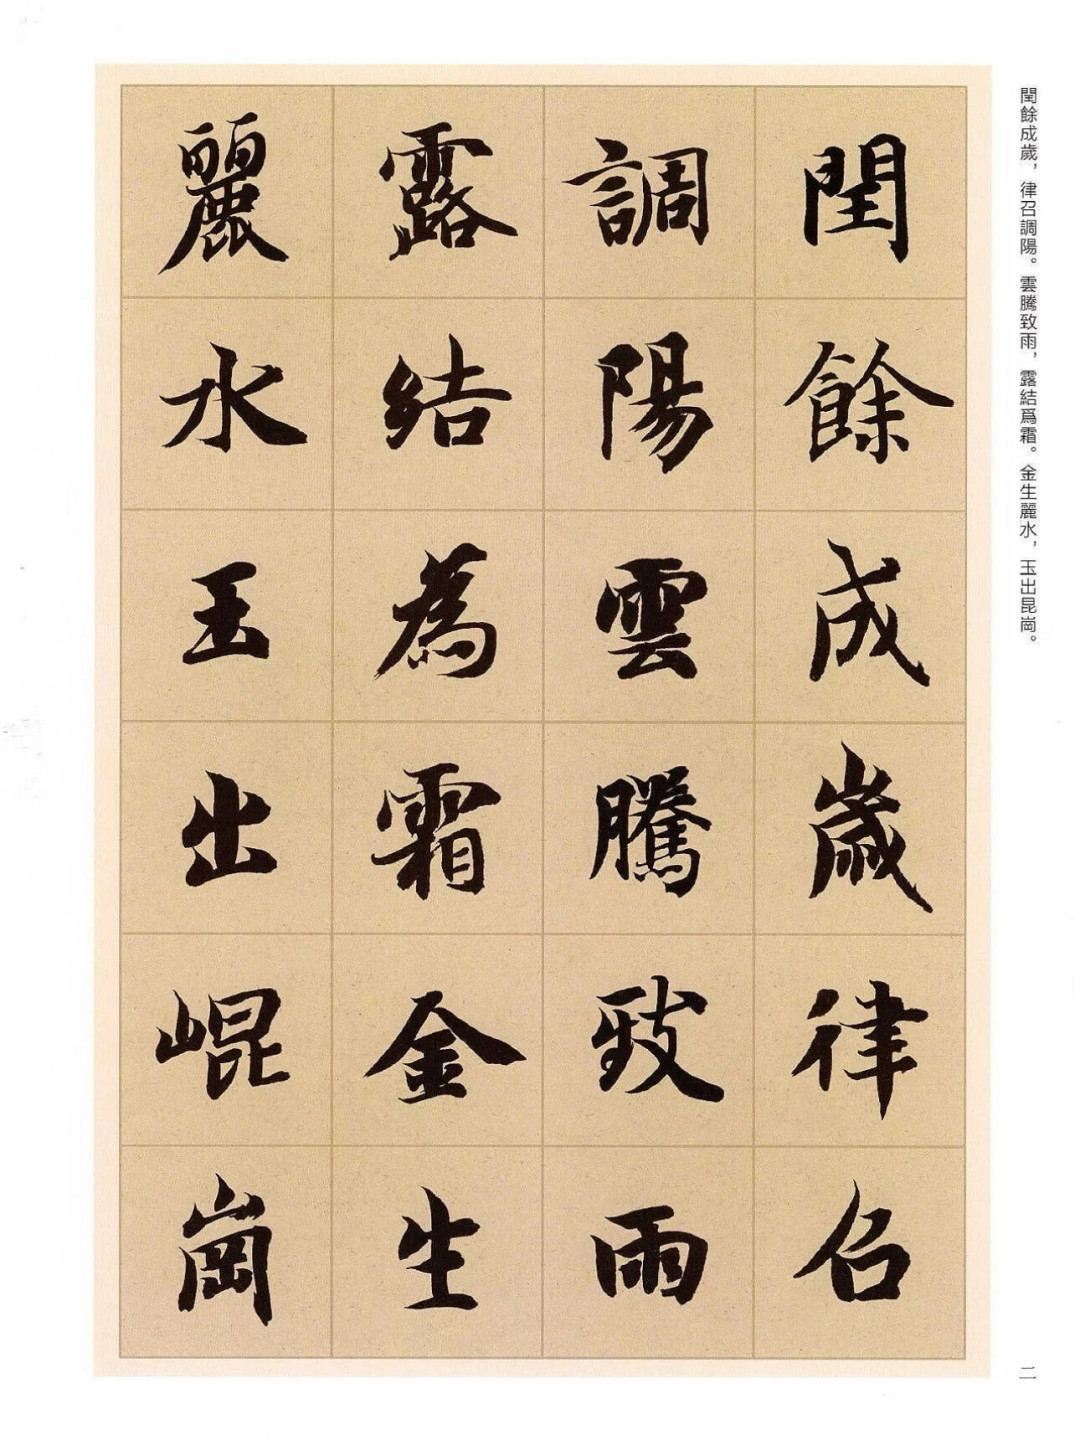 閏餘成歲律召
調陽雲騰致雨
露結為霜金生
麗水玉出崐崗
閏餘成歲，律召調陽。雲騰致雨，露結爲霜。金生麗水，玉出昆崗。
二